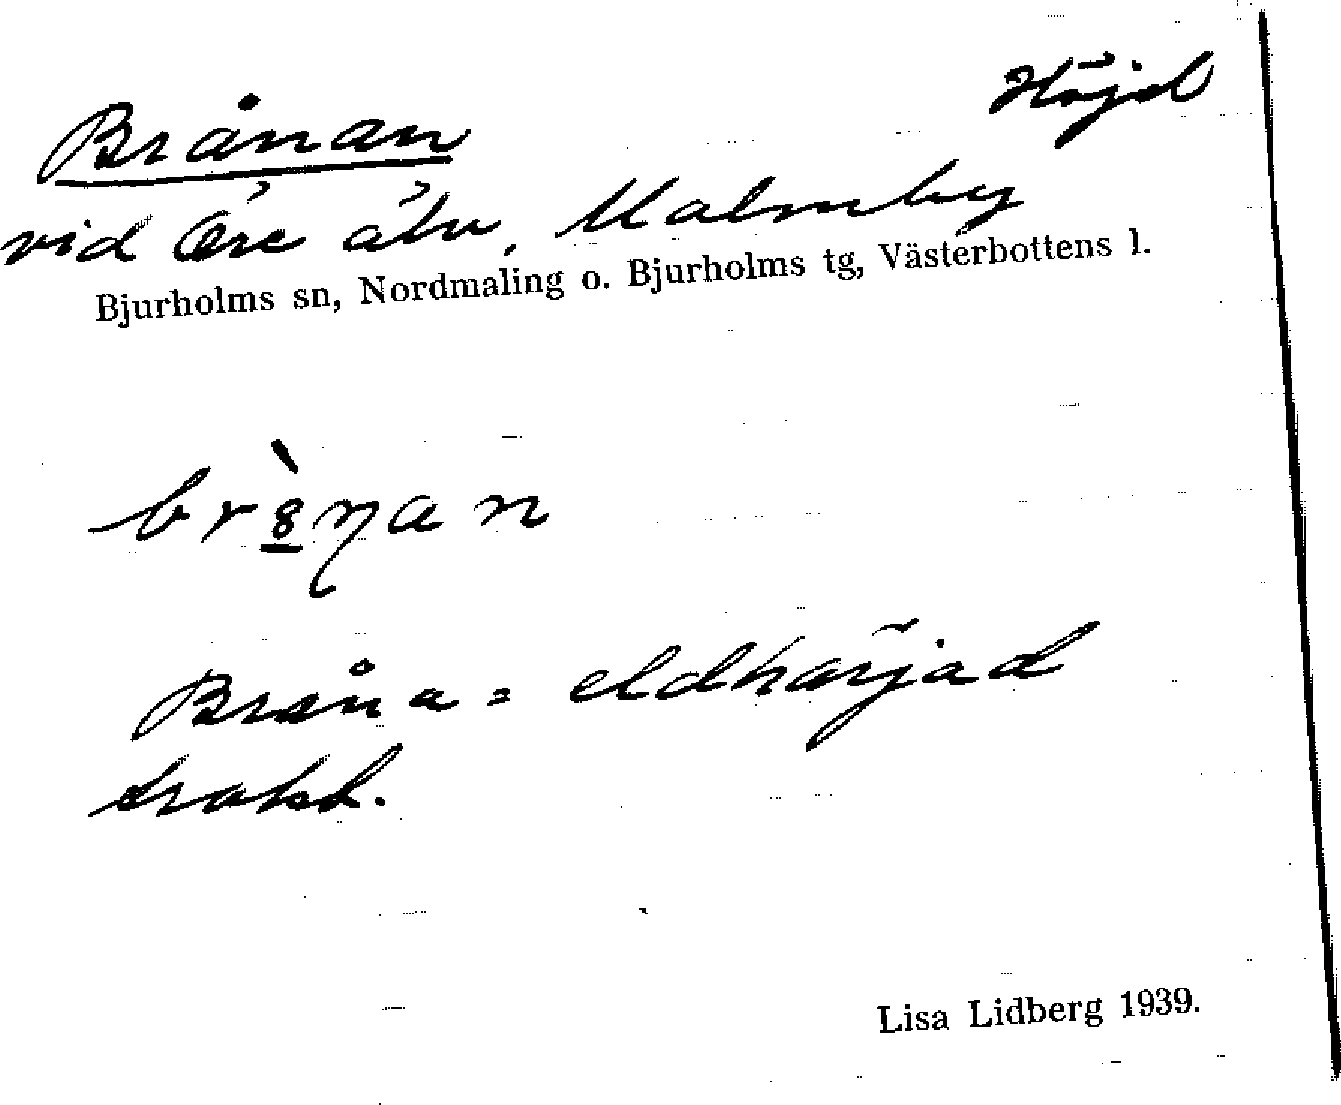 Brånan Höjd
vid Öre älv, Malmby
Bjurholms sn, Nordmaling o. Bjurholms tg, Västerbottens l.
Bråna = eldhärjad
trakt.
Lisa Lidberg 1939.